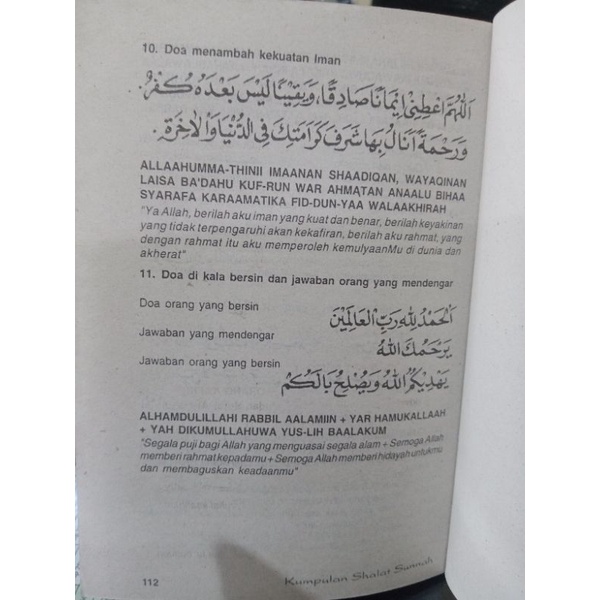 10. Doa menambah kekuatan Iman
اَللّٰهُمَّ اَعْطِنِيْ اِيْمَانًا صَادِقًا، وَيَقِيْنًا لَيْسَ بَعْدَهُ كُفْرٌ.
وَرَحْمَةً اَنَالُ بِهَا شَرَفَ كَرَامَتِكَ فِي الدُّنْيَا وَالْاٰخِرَةِ.
ALLAAHUMMA-THINII IMAANAN SHAADIQAN, WAYAQINAN
LAISA BA'DAHU KUF-RUN WAR AHMATAN ANAALU BIHAA
SYARAFA KARAAMATIKA FID-DUN-YAA WALAAKHIRAH
"Ya Allah, berilah aku iman yang kuat dan benar, berilah keyakinan
yang tidak terpengaruhi akan kekafiran, berilah aku rahmat, yang
dengan rahmat itu aku memperoleh kemulyaanMu di dunia dan
akherat"
11. Doa di kala bersin dan jawaban orang yang mendengar
Doa orang yang bersin اَلْحَمْدُ لِلّٰهِ رَبِّ الْعَالَمِيْنَ
Jawaban yang mendengar يَرْحَمُكَ اللّٰهُ
Jawaban orang yang bersin يَهْدِيْكُمُ اللّٰهُ وَيُصْلِحُ بَالَكُمْ
ALHAMDULILLAHI RABBIL AALAMIIN + YAR HAMUKALLAAH
+ YAH DIKUMULLAHUWA YUS-LIH BAALAKUM
"Segala puji bagi Allah yang menguasai segala alam + Semoga Allah
memberi rahmat kepadamu + Semoga Allah memberi hidayah untukmu
dan membaguskan keadaanmu"
112
Kumpulan Shalat Sunnah